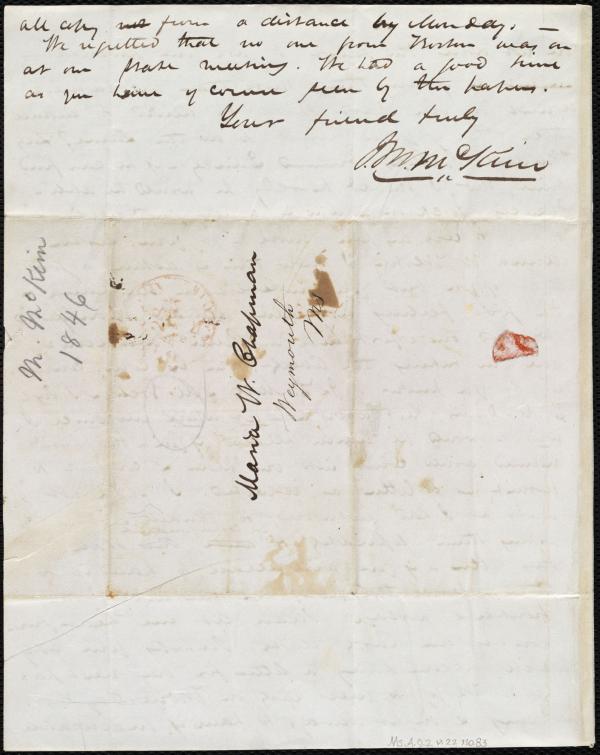 all copy from a distance by Monday. —
We regretted that no one from Boston was on
at our State meeting. We had a good time
as you have of course seen by the papers.
Your friend truly
J. M. McKim
M. McKim
1846
Maria W. Chapman
Weymouth
Ms
Ms.A.9.2 v.22 no.83